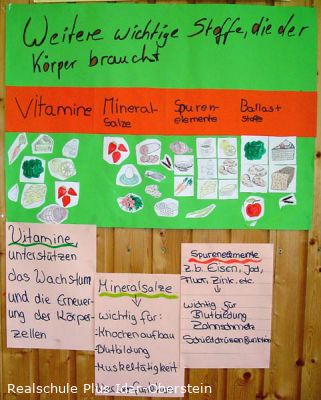 Weitere wichtige Stoffe, die der
Körper braucht
Vitamine
Mineral-
Salze
Spuren-
elemente
Ballast
stoffe
Vitamine
unterstützen
das Wachstum
und die Erneuer-
ung der Körper-
zellen
Mineralsalze
wichtig für:
-Knochenaufbau
-Blutbildung
-Muskeltätigkeit
Spurenelemente
z.b. Eisen, Jod,
Fluor, Zink, etc.
wichtig für
Blutbildung
Zahnschmelz
Schilddrüsenfunktion
Realschule Plus Idar-Oberstein